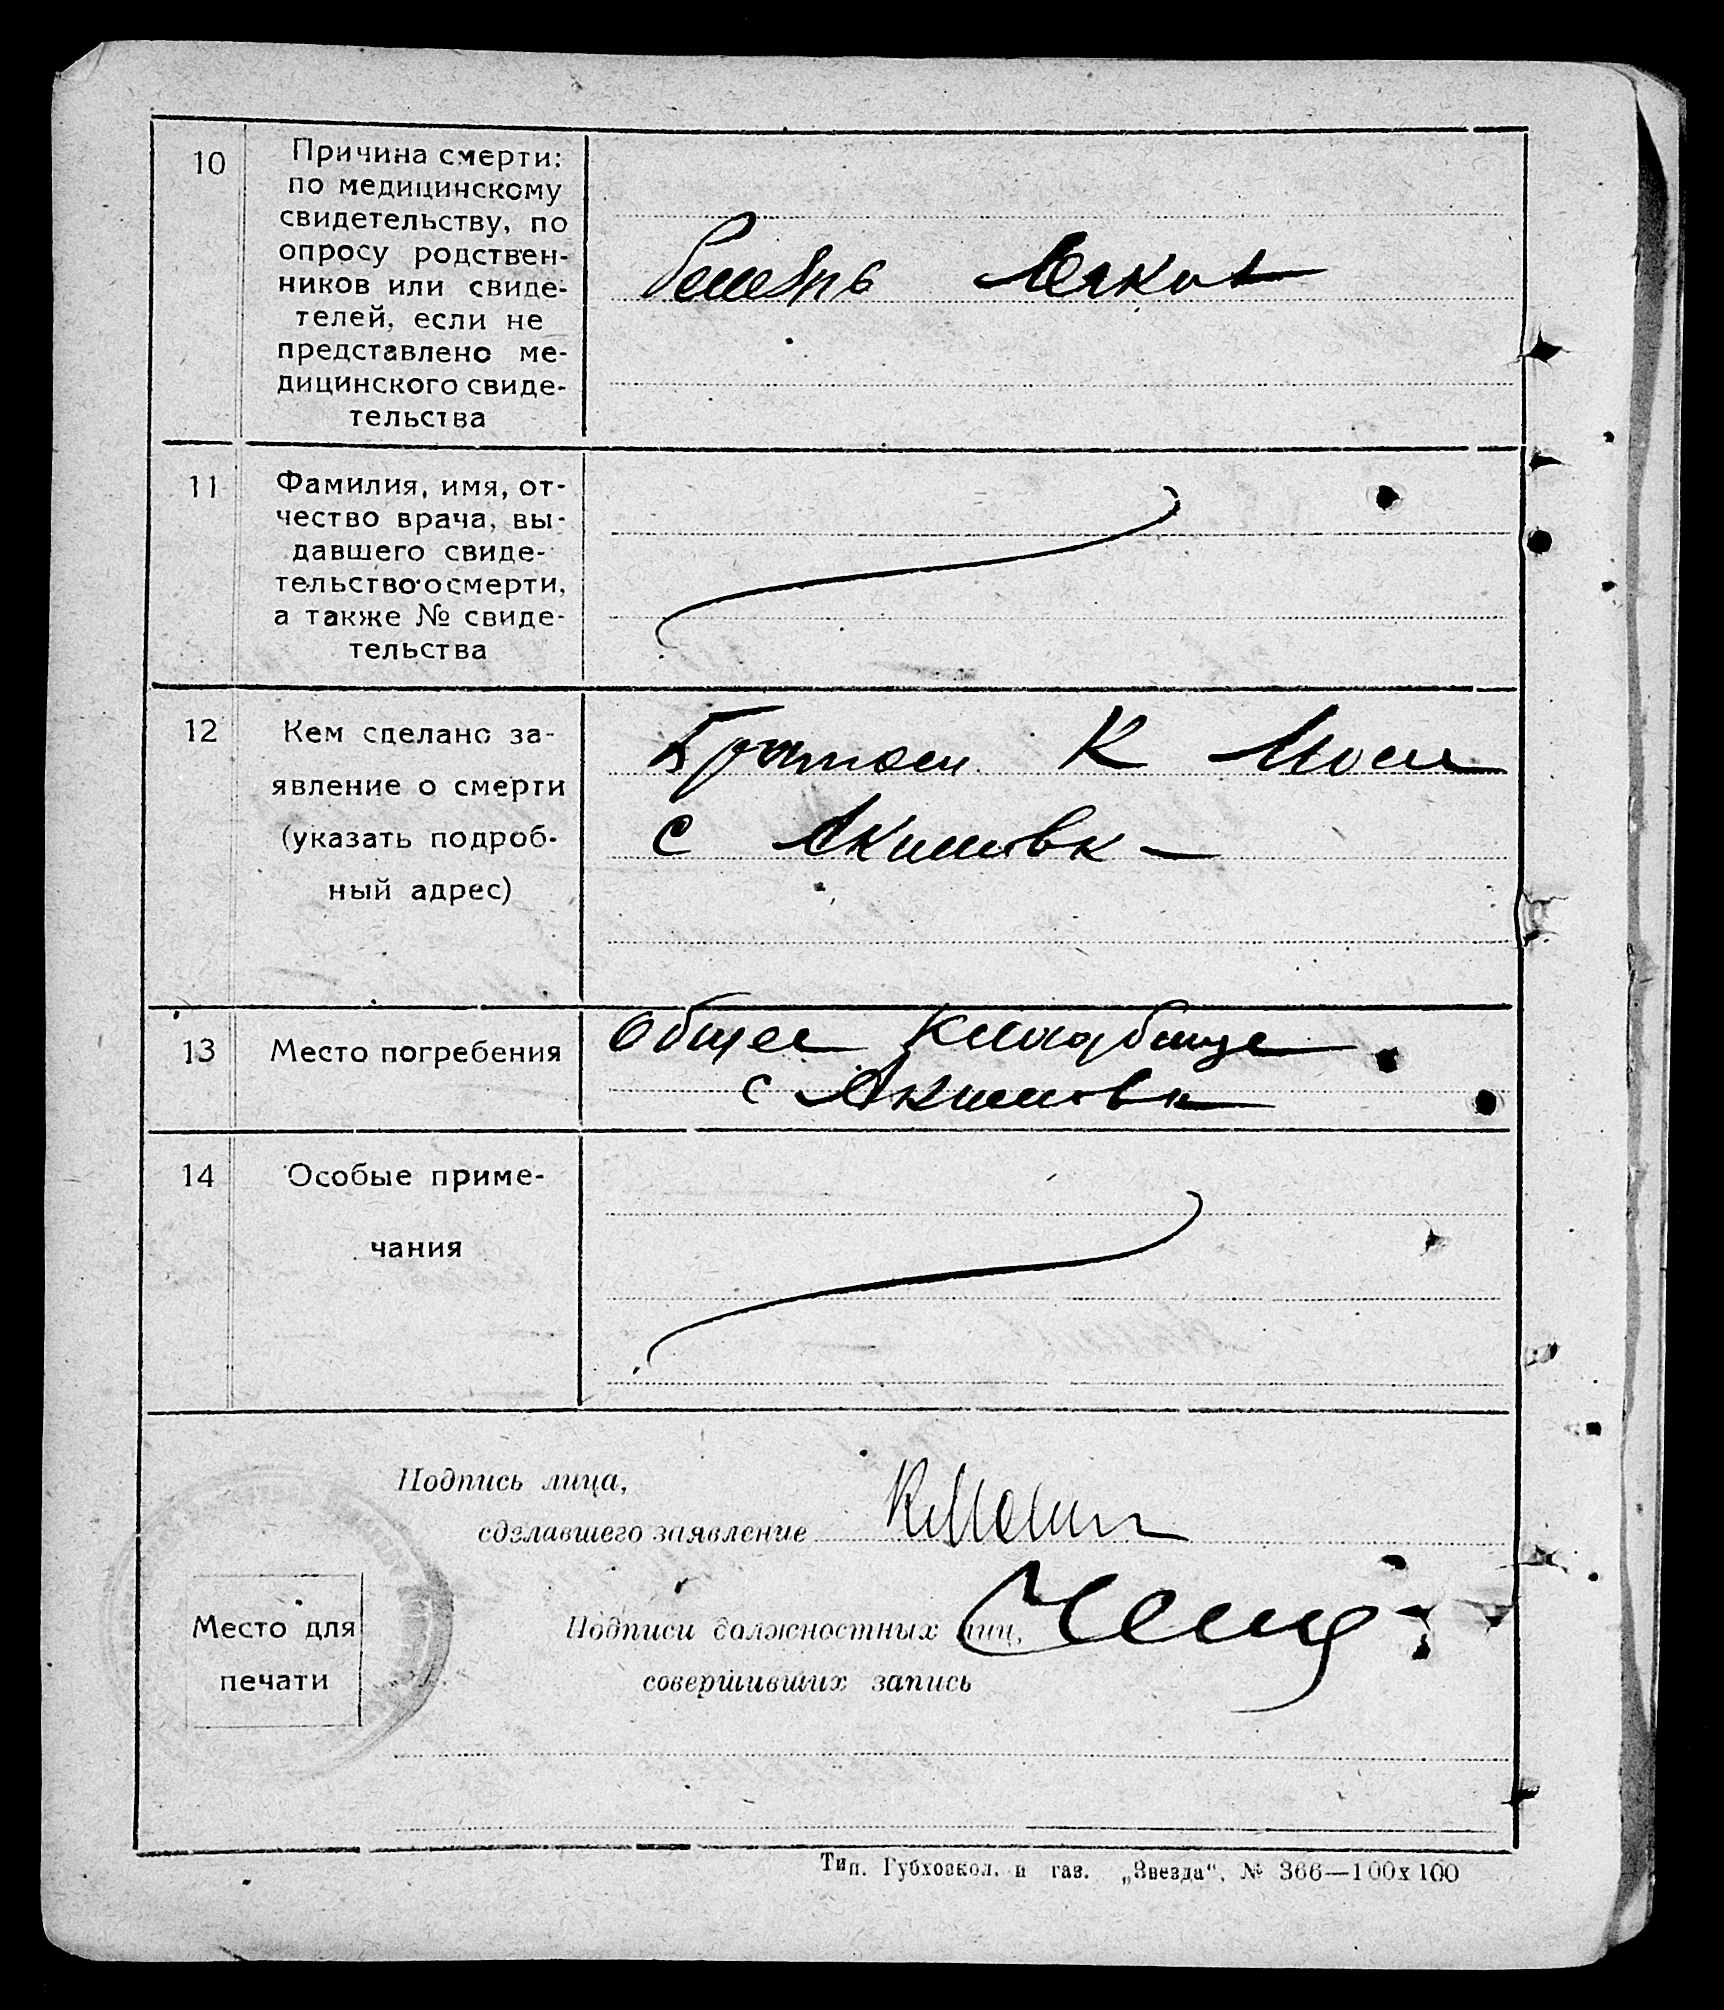 10
Причина смерти:
по медицинскому
свидетельству, по
опросу родствен-
ников или свиде-
телей, если не
представлено ме-
дицинского свиде-
тельства
11
Фамилия, имя, от-
чество врача, вы-
давшего свиде-
тельство о смерти,
а также № свиде-
тельства
12
Кем сделано за-
явление о смерти
(указать подроб-
ный адрес)
К
с Акимовк
13
Место погребения
Общее Кладбище
с Акимовк
14
Особые приме-
чания
Подпись лица,
сделавшего заявление
Место для
печати
Подписи должностных лиц,
совершивших запись
Тип. Губхозкол. и газ. „Звезда“, № 366—100х100